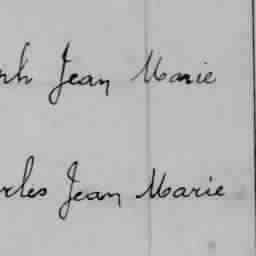 ph Jean Marie
rles Jean Marie